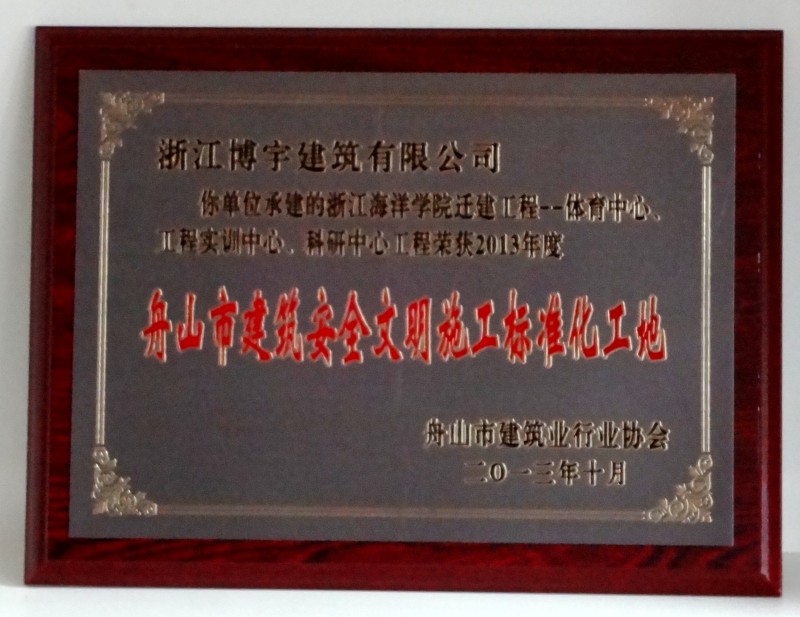 浙江博宇建筑有限公司
你单位承建的浙江海洋学院迁建工程--体育中心、
工程实训中心、科研中心工程荣获2013年度
舟山市建筑安全文明施工标准化工地
舟山市建筑业行业协会
二〇一三年十月